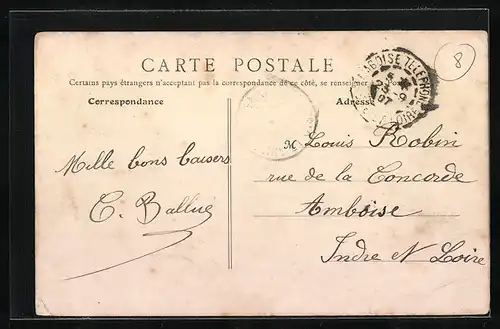 CARTE POSTALE
Certains pays étrangers n'acceptant pas la correspondance de ce côté, se renseigner
Correspondance
Adresse
Mille bons baisers
C. Ballué
M Louis Robin
rue de la Concorde
Amboise
Indre et Loire
AMBOISE TELEPHONE
8